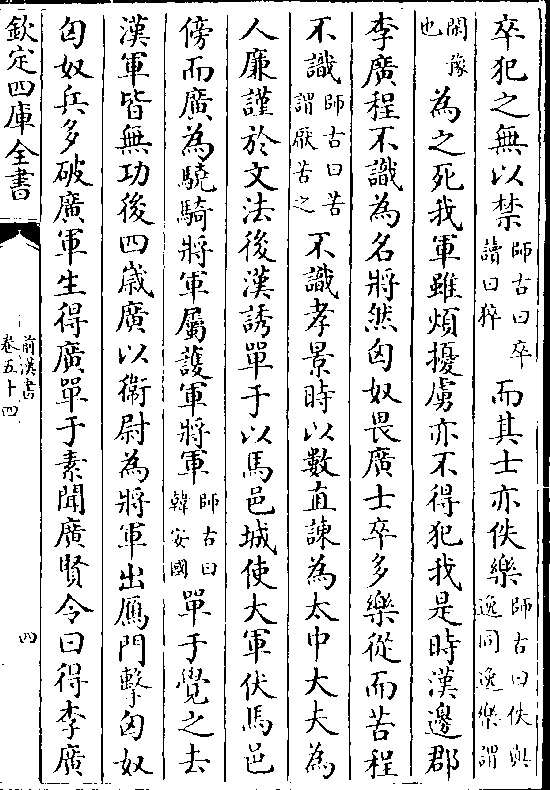 卒犯之無以禁師古曰卒讀曰猝而其士亦佚樂師古曰佚與逸同逸樂謂
閑豫也為之死我軍雖煩擾虜亦不得犯我是時漢邊郡
李廣程不識為名將然匈奴畏廣士卒多樂從而苦程
不識師古曰苦謂厭苦之不識孝景時以數直諫為太中大夫為
人廉謹於文法後漢誘單于以馬邑城使大軍伏馬邑
傍而廣為驍騎將軍屬護軍將軍師古曰韓安國單于覺之去
漢軍皆無功後四歲廣以衛尉為將軍出雁門擊匈奴
匈奴兵多破廣軍生得廣單于素聞廣賢令曰得李廣
欽定四庫全書
前漢書
卷五十四
四